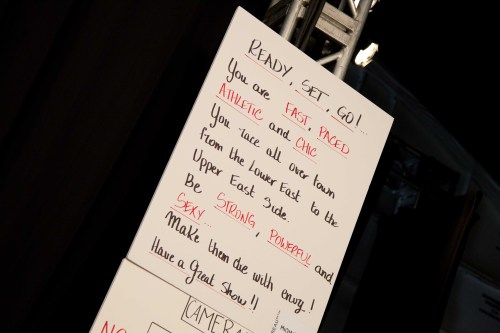 READY, SET, GO!...
You are FAST, PACED
ATHLETIC and CHIC
You race all over town
from the Lower East to the
Upper East Side.
Be STRONG, POWERFUL and
SEXY...
Make them die with envy!
Have a Great Show!!
CAMERA
NO